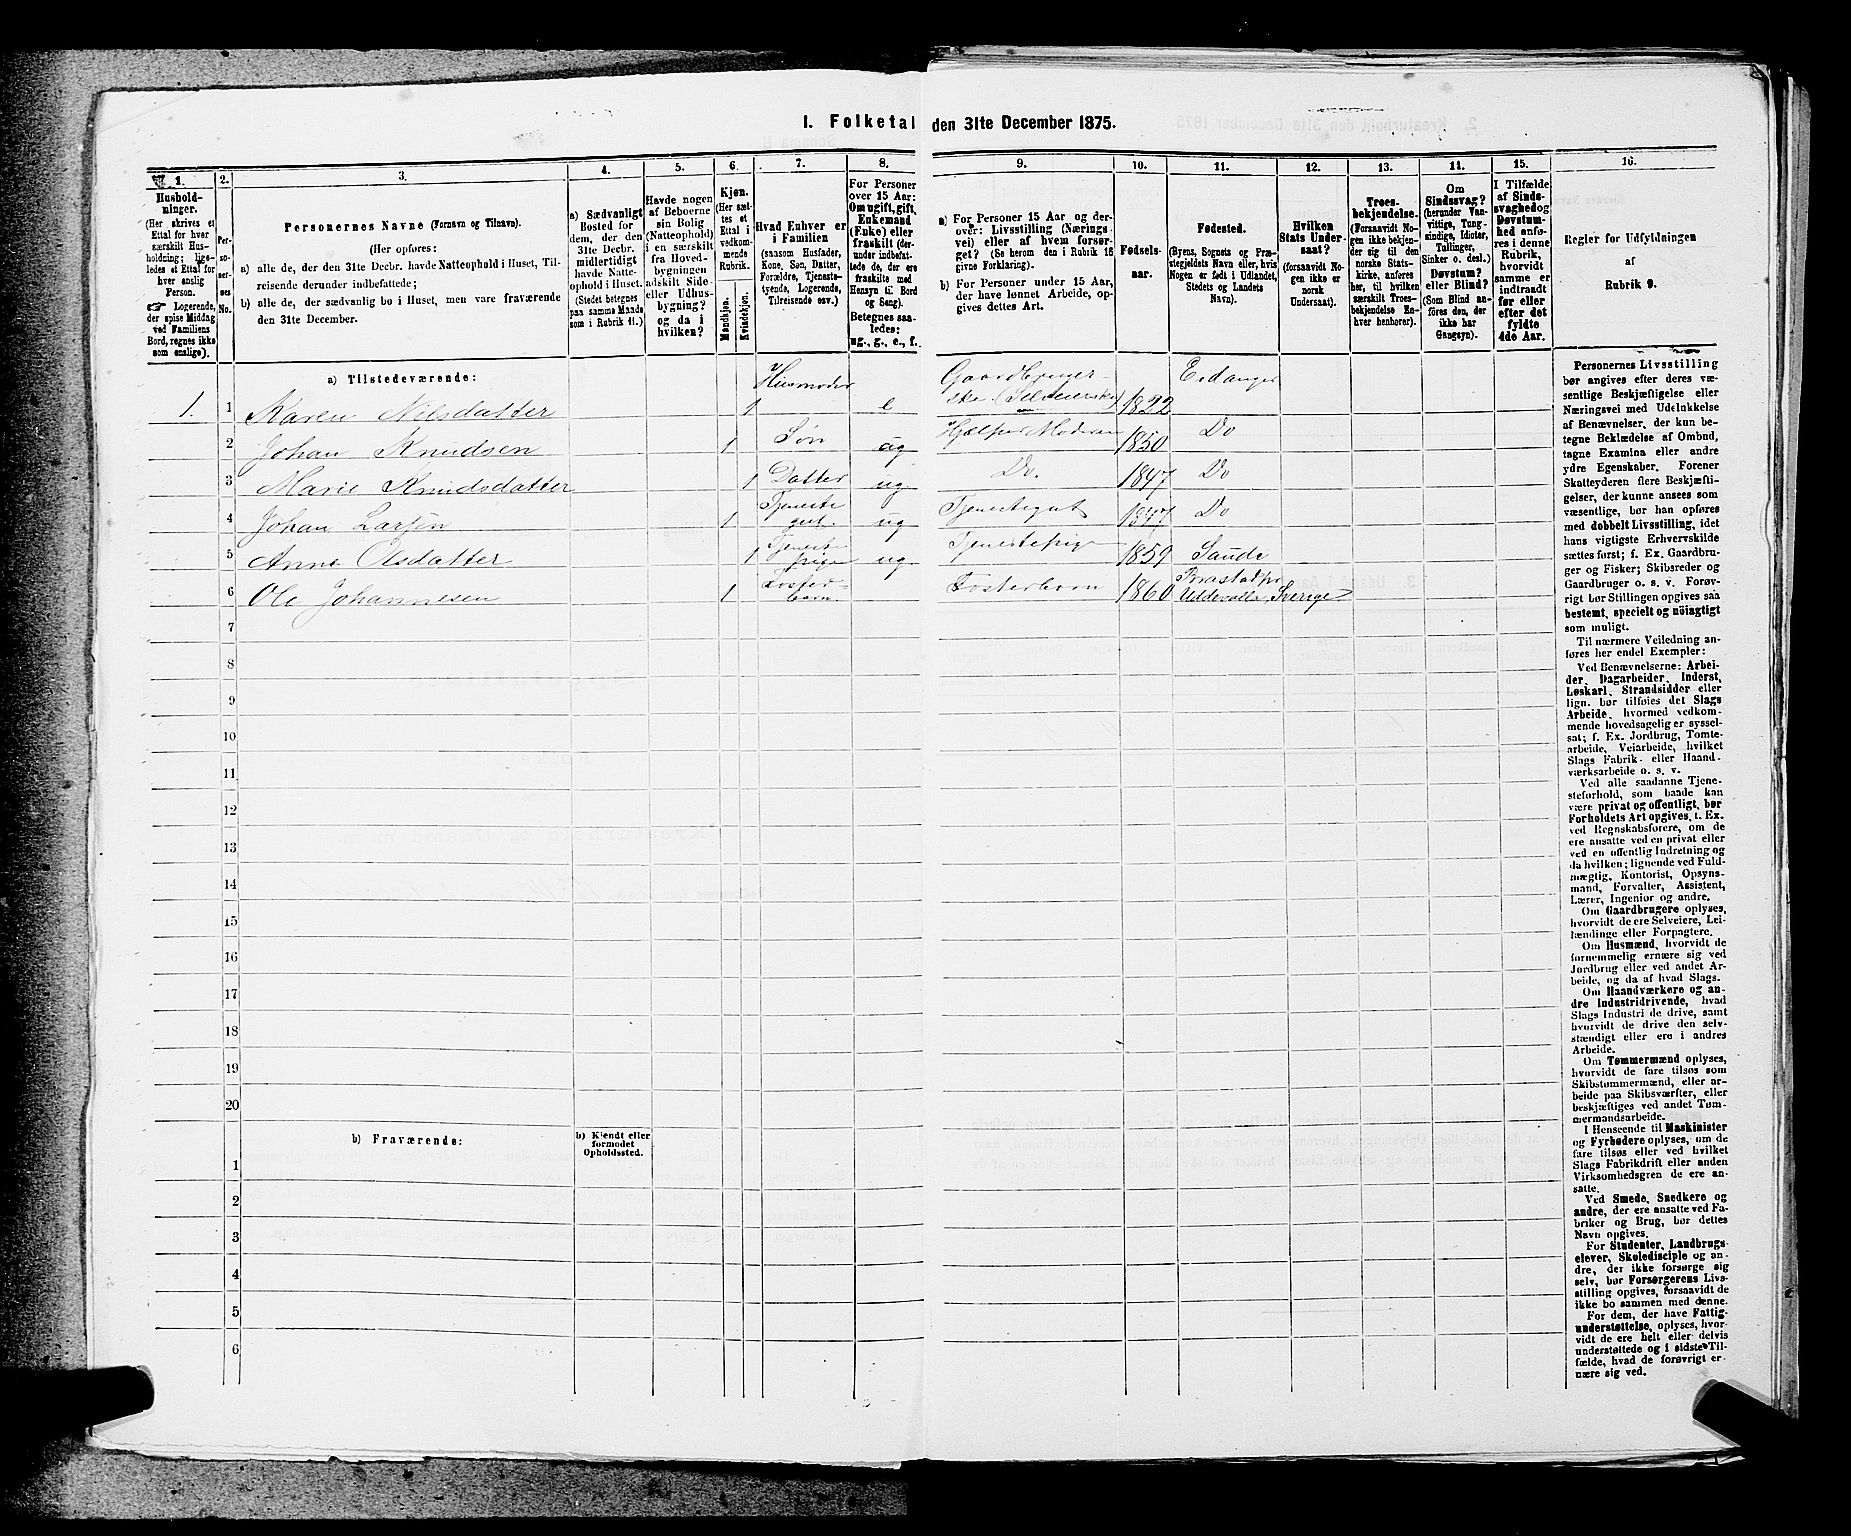 I. Folketal den 31te December 1875.
1.
Hushold-
ninger.
(Her skrives et
Ettal for hver
særskilt Hus-
holdning; lige-
ledes et Ettal for
hver enslig
Person.
Logerende,
der spise Middag
ved Familiens
Bord, regnes ikke
som enslige).
2.
Per-
so-
ner-
nes
No.
3.
Personernes Navne (Fornavn og Tilnavn).
(Her opføres:
a) alle de, der den 31te Decbr. havde Natteophold i Huset, Til-
reisende derunder indbefattede;
b) alle de, der sædvanlig bo i Huset, men vare fraværende
den 31te December.
4.
a) Sædvanligt
Bosted for
dem, der den
31te Decbr.
midlertidigt
havde Natte-
ophold i Huset.
(Stedet betegnes
paa samme Maade
som i Rubrik 11.)
5.
Havde nogen
af Beboerne
sin Bolig
(Natteophold)
i en særskilt
fra Hoved-
bygningen
adskilt Side-
eller Udhus-
bygning?
og da i
hvilken?
6.
Kjøn.
(Her sæt-
tes et
Ettal i
vedkom-
mende
Rubrik.
Mandkjøn.
Kvindekjøn.
7.
Hvad Enhver er
i Familien
(saasom Husfader,
Kone, Søn, Datter,
Forældre, Tjenest-
tyende, Logerende,
Tilreisende osv.)
8.
For Personer
over 15 Aar:
Om ugift, gift,
Enkemand
(Enke) eller
fraskilt (der-
under indbefat-
tede de, der ere
fraskilte med
Hensyn til Bord
og Seng).
Betegnes saa-
ledes:
ug., g., e., f.
9.
a) For Personer 15 Aar og der-
over: Livsstilling (Nærings-
vei) eller af hvem forsør-
get? (Se herom den i Rubrik 16
givne Forklaring).
b) For Personer under 15 Aar,
der have lønnet Arbeide, op-
gives dettes Art.
10.
Fødsels-
aar.
11.
Fødested.
(Byens, Sognets og Præ-
stegjeldets Navn eller, hvis
Nogen er født i Udlandet,
Stedets og Landets
Navn).
12.
Hvilken
Stats Under-
saat?
(forsaavidt No-
gen ikke er
norsk
Undersaat).
13.
Troes-
bekjendelse.
(Forsaavidt No-
gen ikke bekjen-
der sig til den
norske Stats-
kirke, anføres
her, til hvilken
særskilt Troes-
bekjendelse En-
hver henhører).
14.
Om
Sindssvag?
(herunder Van-
vittige, Tung-
sindige, Idioter,
Tullinger,
Sinker o. desl.)
Døvstum?
eller Blind?
(Som Blind an-
føres den, der
ikke har
Gangsyn).
15.
I Tilfælde
af Sinds-
svaghed og
Døvstum-
hed anfø-
res i denne
Rubrik,
hvorvidt
samme er
indtraadt
før eller
efter det
fyldte
4de Aar.
16.
Regler for Udfyldningen
af
Rubrik 9.
a) Tilstedeværende:
1. 1 Karen Nilsdatter 1 Husmoder e Gaardbruger-ske (Selveierske) 1822 Eidanger
2 Johan Knudsen 1 Søn ug Hjælper Moderen 1850 Do
3 Marie Knudsdatter 1 Datter ug Do. 1847 Do
4 Johan Larsen 1 Tjeneste gut. ug Tjenestegut 1847 Do
5 Anne Olsdatter 1 Tjeneste pige ug Tjenestepige 1859 Saude
6 Ole Johannesen 1 Foster-barn Fosterbarn 1860 Uddevalla, Sverige
7
8
9
10
11
12
13
14
15
16
17
18
19
20
b) Fraværende:
b) Kjendt eller
formodet
Opholdssted.
1
2
3
4
5
6
Personernes Livsstilling
bør angives efter deres væ-
sentlige Beskjæftigelse eller
Næringsvei med Udelukkelse
af Benævnelser, der kun be-
tegne Beklædelse af Ombud,
tagne Examina eller andre
ydre Egenskaber. Forener
Skatteyderen flere Beskjæfti-
gelser, der kunne ansees som
væsentlige, bør han opføres
med dobbelt Livsstilling, idet
hans vigtigste Erhvervskilde
sættes først; f. Ex. Gaardbru-
ger og Fisker; Skibsreder og
Gaardbruger o. s. v. Forøv-
rigt bør Stillingen opgives saa
bestemt, specielt og nøiagtigt
som muligt.
Til nærmere Veiledning an-
føres her endel Exempler:
Ved Benævnelserne: Arbei-
der, Dagarbeider, Inderst,
Løskarl, Strandsidder eller
lign. bør tilføies det Slags
Arbeide, hvormed vedkom-
mende hovedsagelig er syssel-
sat; f. Ex. Jordbrug, Tomte-
arbeide, Veiarbeide, hvilket
Slags Fabrik- eller Haand-
værksarbeide o. s. v.
Ved alle saadanne Tjene-
steforhold, som baade kan
være privat og offentligt, bør
Forholdets Art opgives, t. Ex.
ved Regnskabsførere, om de
ere ansatte ved en privat eller
ved en offentlig Indretning og
da hvilken; lignende ved Fuld-
mægtig, Kontorist, Opsyns-
mand, Forvalter, Assistent,
Lærer, Ingeniør og andre.
Om Gaardbrugere oplyses,
hvorvidt de ere Selveiere, Lei-
lændinge eller Forpagtere.
Om Husmænd, hvorvidt de
fornemmelig ernære sig ved
Jordbrug eller ved andet Ar-
beide, og da af hvad Slags.
Om Haandværkere og an-
dre Industridrivende, hvad
Slags Industri de drive, samt
hvorvidt de drive den selv-
stændigt eller ere i andres
Arbeide.
Om Tømmermænd oplyses,
hvorvidt de fare tilsøs som
Skibstømmermænd, eller ar-
beide paa Skibsværfter, eller
beskjæftiges ved andet Tøm-
mermandsarbeide.
I Henseende til Maskinister
og Fyrbødere oplyses, om de
fare tilsøs eller ved hvilket
Slags Fabrikdrift eller anden
Virksomhedsgren de ere an-
satte.
Ved Smede, Snedkere og
andre, der ere ansatte ved Fa-
briker og Brug, bør dettes
Navn opgives.
For Studenter, Landbrugs-
elever, Skoledisciple og an-
dre, der ikke forsørge sig
selv, bør Forsørgerens Livs-
stilling opgives, forsaavidt de
ikke bo sammen med denne.
For dem, der have Fattig-
understøttelse, oplyses, hvor-
vidt de ere helt eller delvis
understøttede og i sidste Til-
fælde, hvad de forøvrigt er-
nære sig ved.